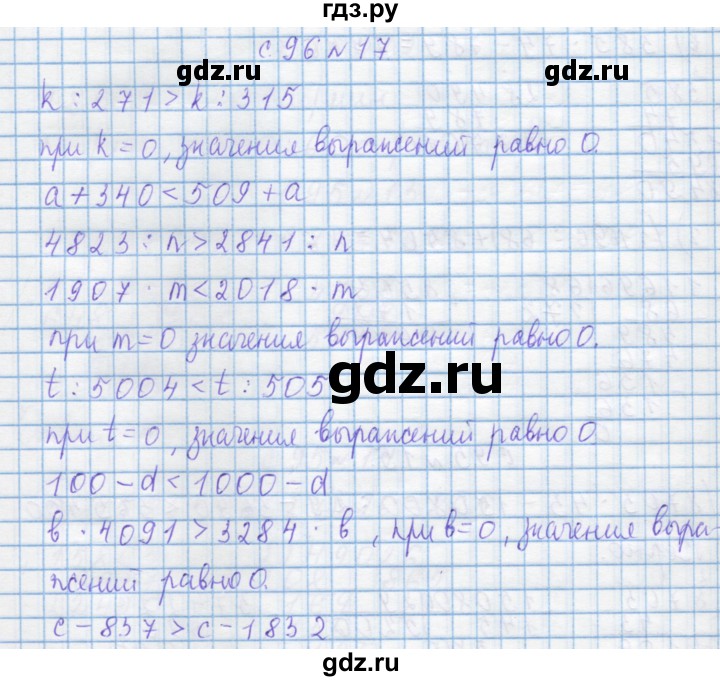 гдз.ру
с. 96 № 17
gdz.ru gdz.ru
k : 271 > k : 315
при k = 0, значения выражений равно 0.
a + 340 < 509 + a
4823 : n > 2841 : n
1907 · m < 2018 · m
при m = 0 значения выражений равно 0.
gdz.ru
t : 5004 < t : 505
при t = 0, значения выражений равно 0
100 - d < 1000 - d
в · 4091 > 3284 · в, при в = 0, значения выра-
жений равно 0.
gdz.ru gdz.ru
c - 837 > c - 1832
gdz.ru